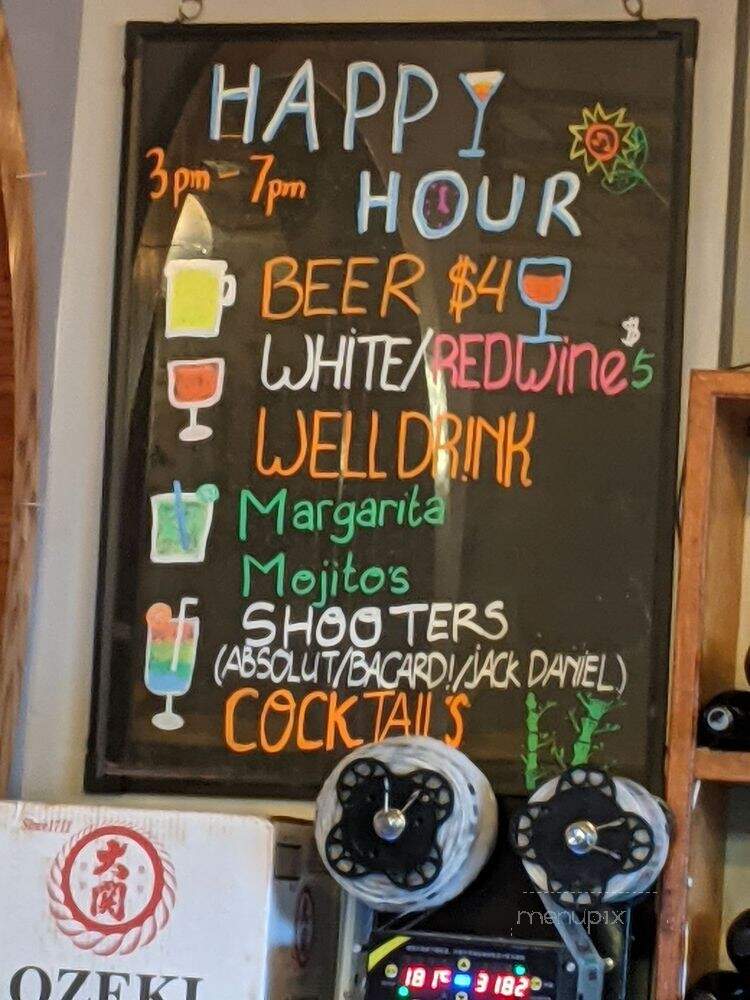 HAPPY
3pm - 7pm
HOUR
BEER $4
WHITE/REDWine $5
WELL DRINK
Margarita
Mojito's
SHOOTERS
(ABSOLUT/BACARDI/JACK DANIEL)
COCKTAIL'S
Since 1711
大関
OZEKI
menupix
181°C 3182